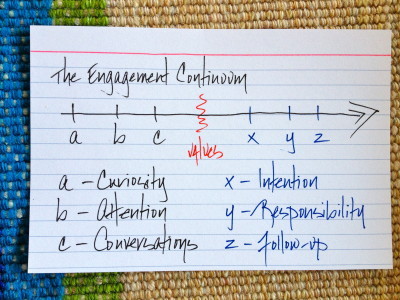 The Engagement Continuum
a b c values x y z
a - Curiosity
b - Attention
c - Conversations
x - Intention
y - Responsibility
z - Follow-up